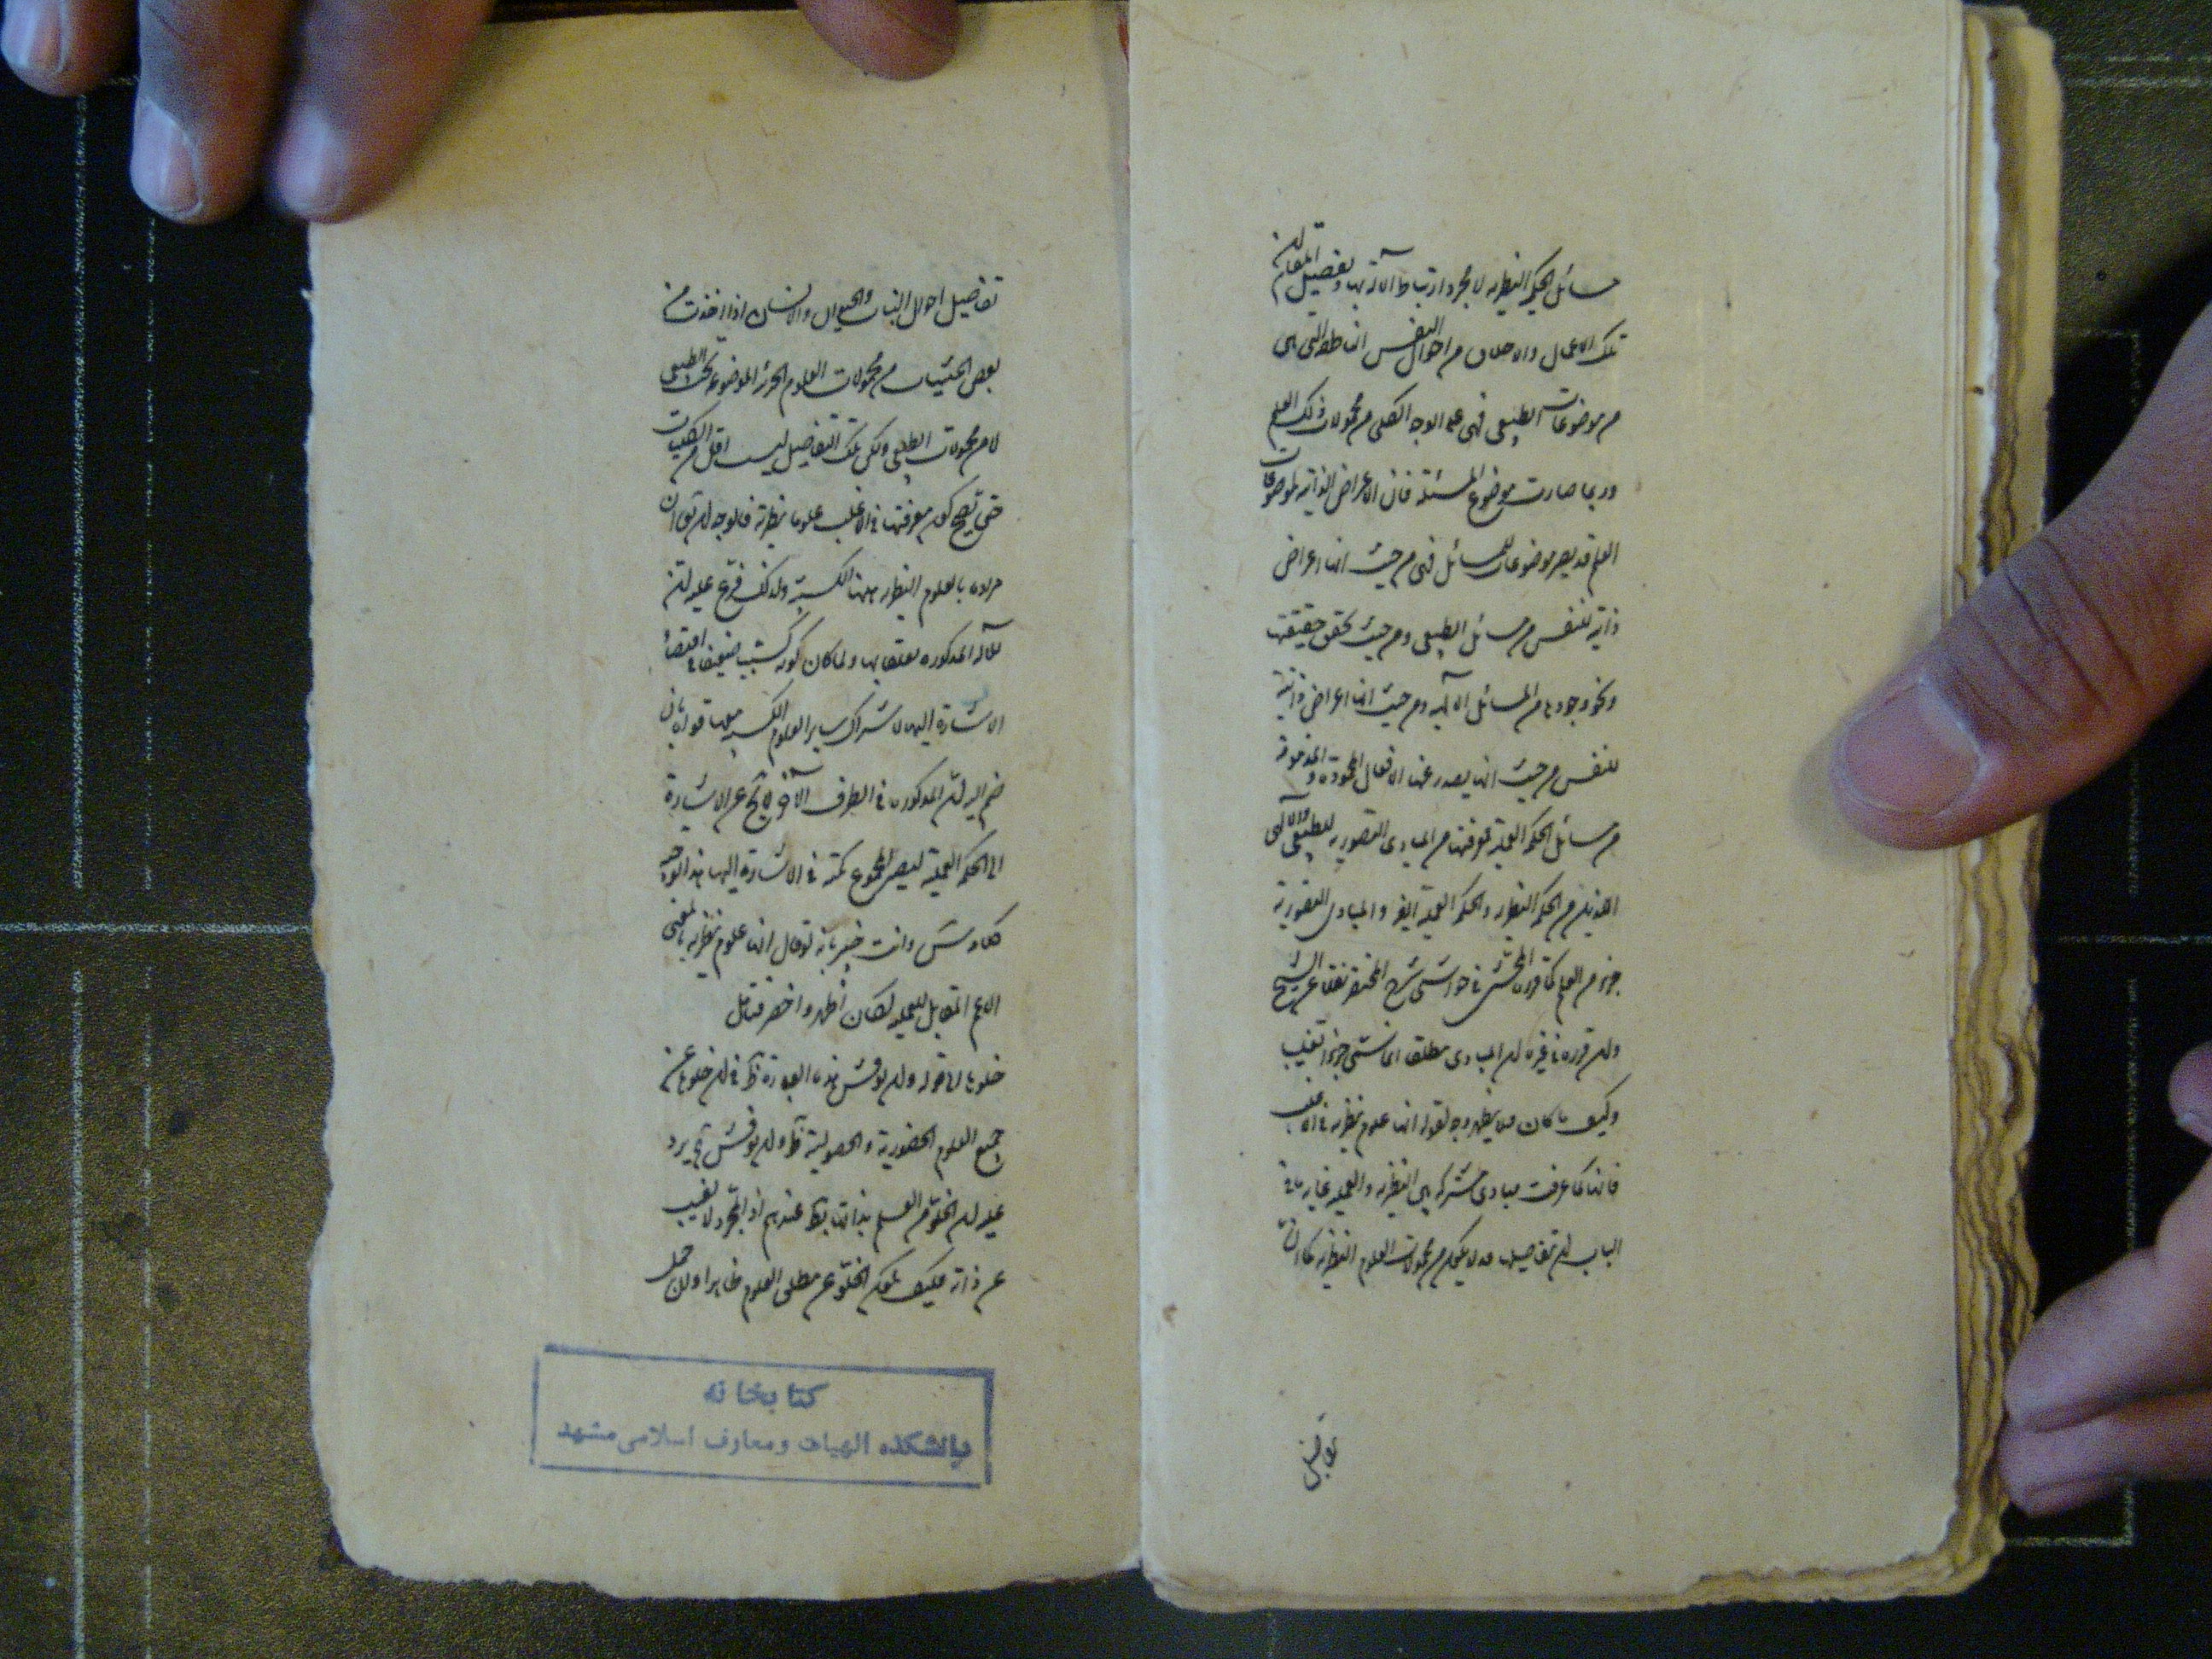 مسائل الحكمة النظرية لا مجرد ارتباط الآلة بها وتفصيل المقام ان
تلك الاعمال والاخلاق من احوال النفس الناطقة التي هي
من موضوعات الطبيعي فهي على الوجه الكلي من محمولات ذلك العلم
وربما صارت موضوع المسئلة فان الاعراض الذاتية لموضوعات
العلم قد يصير موضوعات للمسائل فهي من حيث انها اعراض
ذاتية للنفس من مسائل الطبيعي ومن حيث تحقق حقيقتها
ونحو وجودها من المسائل الآلهية ومن حيث انها اعراض ذاتية
للنفس من حيث انها يصدر عنها الافعال المحمودة والمذمومة
من مسائل الحكمة العملية فمعرفتها من المبادى التصورية للطبيعي والآلهي
اللذين من الحكمة النظرية والحكمة العملية ايضا والمبادى التصورية
جزء من العلم كما قرره المحشي في حواشي شرح المختصر نقلا عن الشيخ
وان قرره في غيره ان المبادى مطلقا انما سمي جزء تغليبا
وكيف ما كان فلا يظهر وجه لقوله انها علوم نظرية في
فانها كما عرفت مبادى مشتركة بين النظرية والعملية غاية ما في
الباب ان تفاصيلها قد لا يكون من محمولات العلوم النظرية كما ان
تفاصيل
تفاصيل احوال النبات والحيوان والانسان اذا اخذت من
بعض الحيثيات من محمولات العلوم الجزئية الموضوعة تحت الطبيعي
لا من محمولات الطبيعي ولكن تلك التفاصيل ليست اقل من الكليات
حتى يصح كون معرفتها في الاغلب علوما نظرية فالوجه ان يق ان
مراده بالعلوم النظرية ههنا الكسبية ولذلك فرع عليه ان
للآلة المذكورة تعلقا بها ولما كان كونه كسبية ضعيفا في اقتضاء
الاشارة اليها لاشتراك ساير العلوم الكسبية معها قواه بان
ضم اليه ان المذكورة في الطرف الآخر لا يخ عن الاشارة
الى الحكمة العملية ليصير المجموع نكتة في الاشارة اليها بهذا الوجه
وانت خبير بانه لو قال انها علوم نظرية بالمعنى
الاعم المقابل للعملية لكان اظهر واخصر فتامل
خلوها قوله ولم يوقش هذه العبارة ظ في ان خلوها عن
جميع العلوم الحضورية والحصولية ظ ولم يوقش يرد
عليه ان الخلو من العلم بذاتها بط عندهم اذ المجرد لا يغيب
عن ذاته فكيف يكون الخلو عن مطلق العلوم ظاهرا ولان حمل
كتابخانه
دانشكده الهيات ومعارف اسلامى مشهد